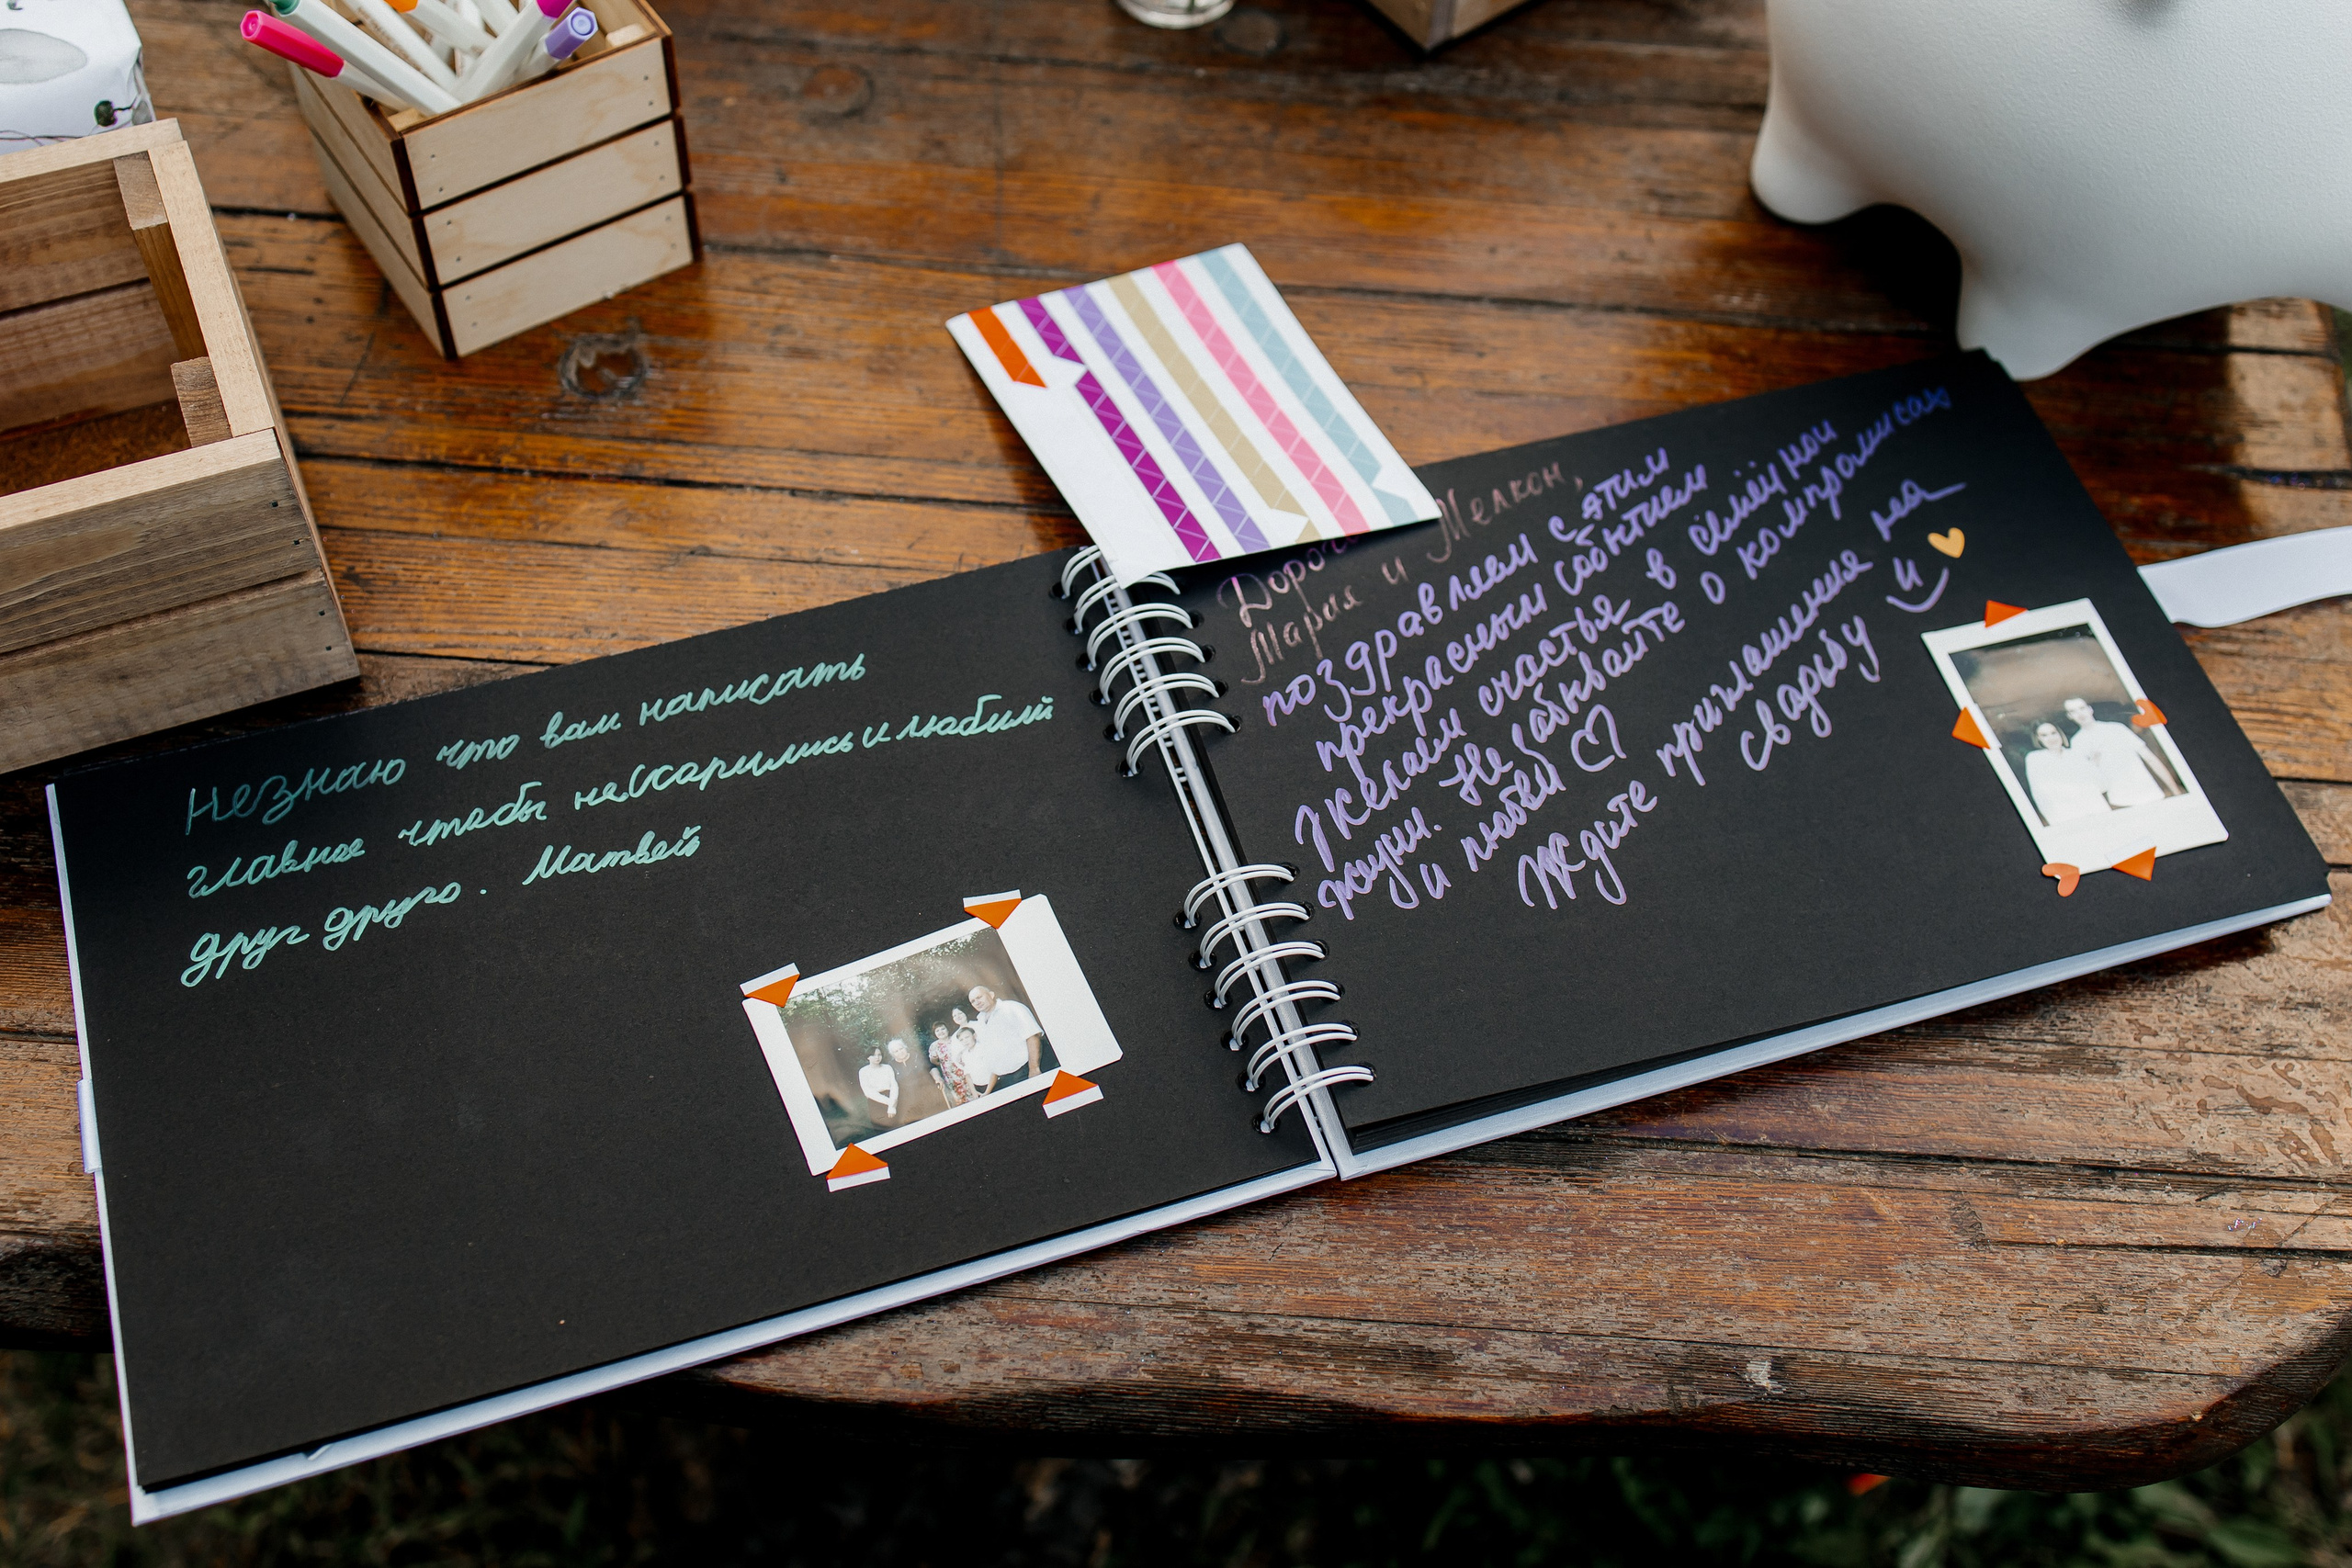 Незнаю что вам написать
главное чтобы нессорились и любили
друг друго. Матвей
Дорог
Мария и Мелкон,
поздравляем с этим
прекрасным событием
Желаем счастья в семейной
жизни. Не забывайте о компромисах
и любви
Ждите приглашения на
свадьбу